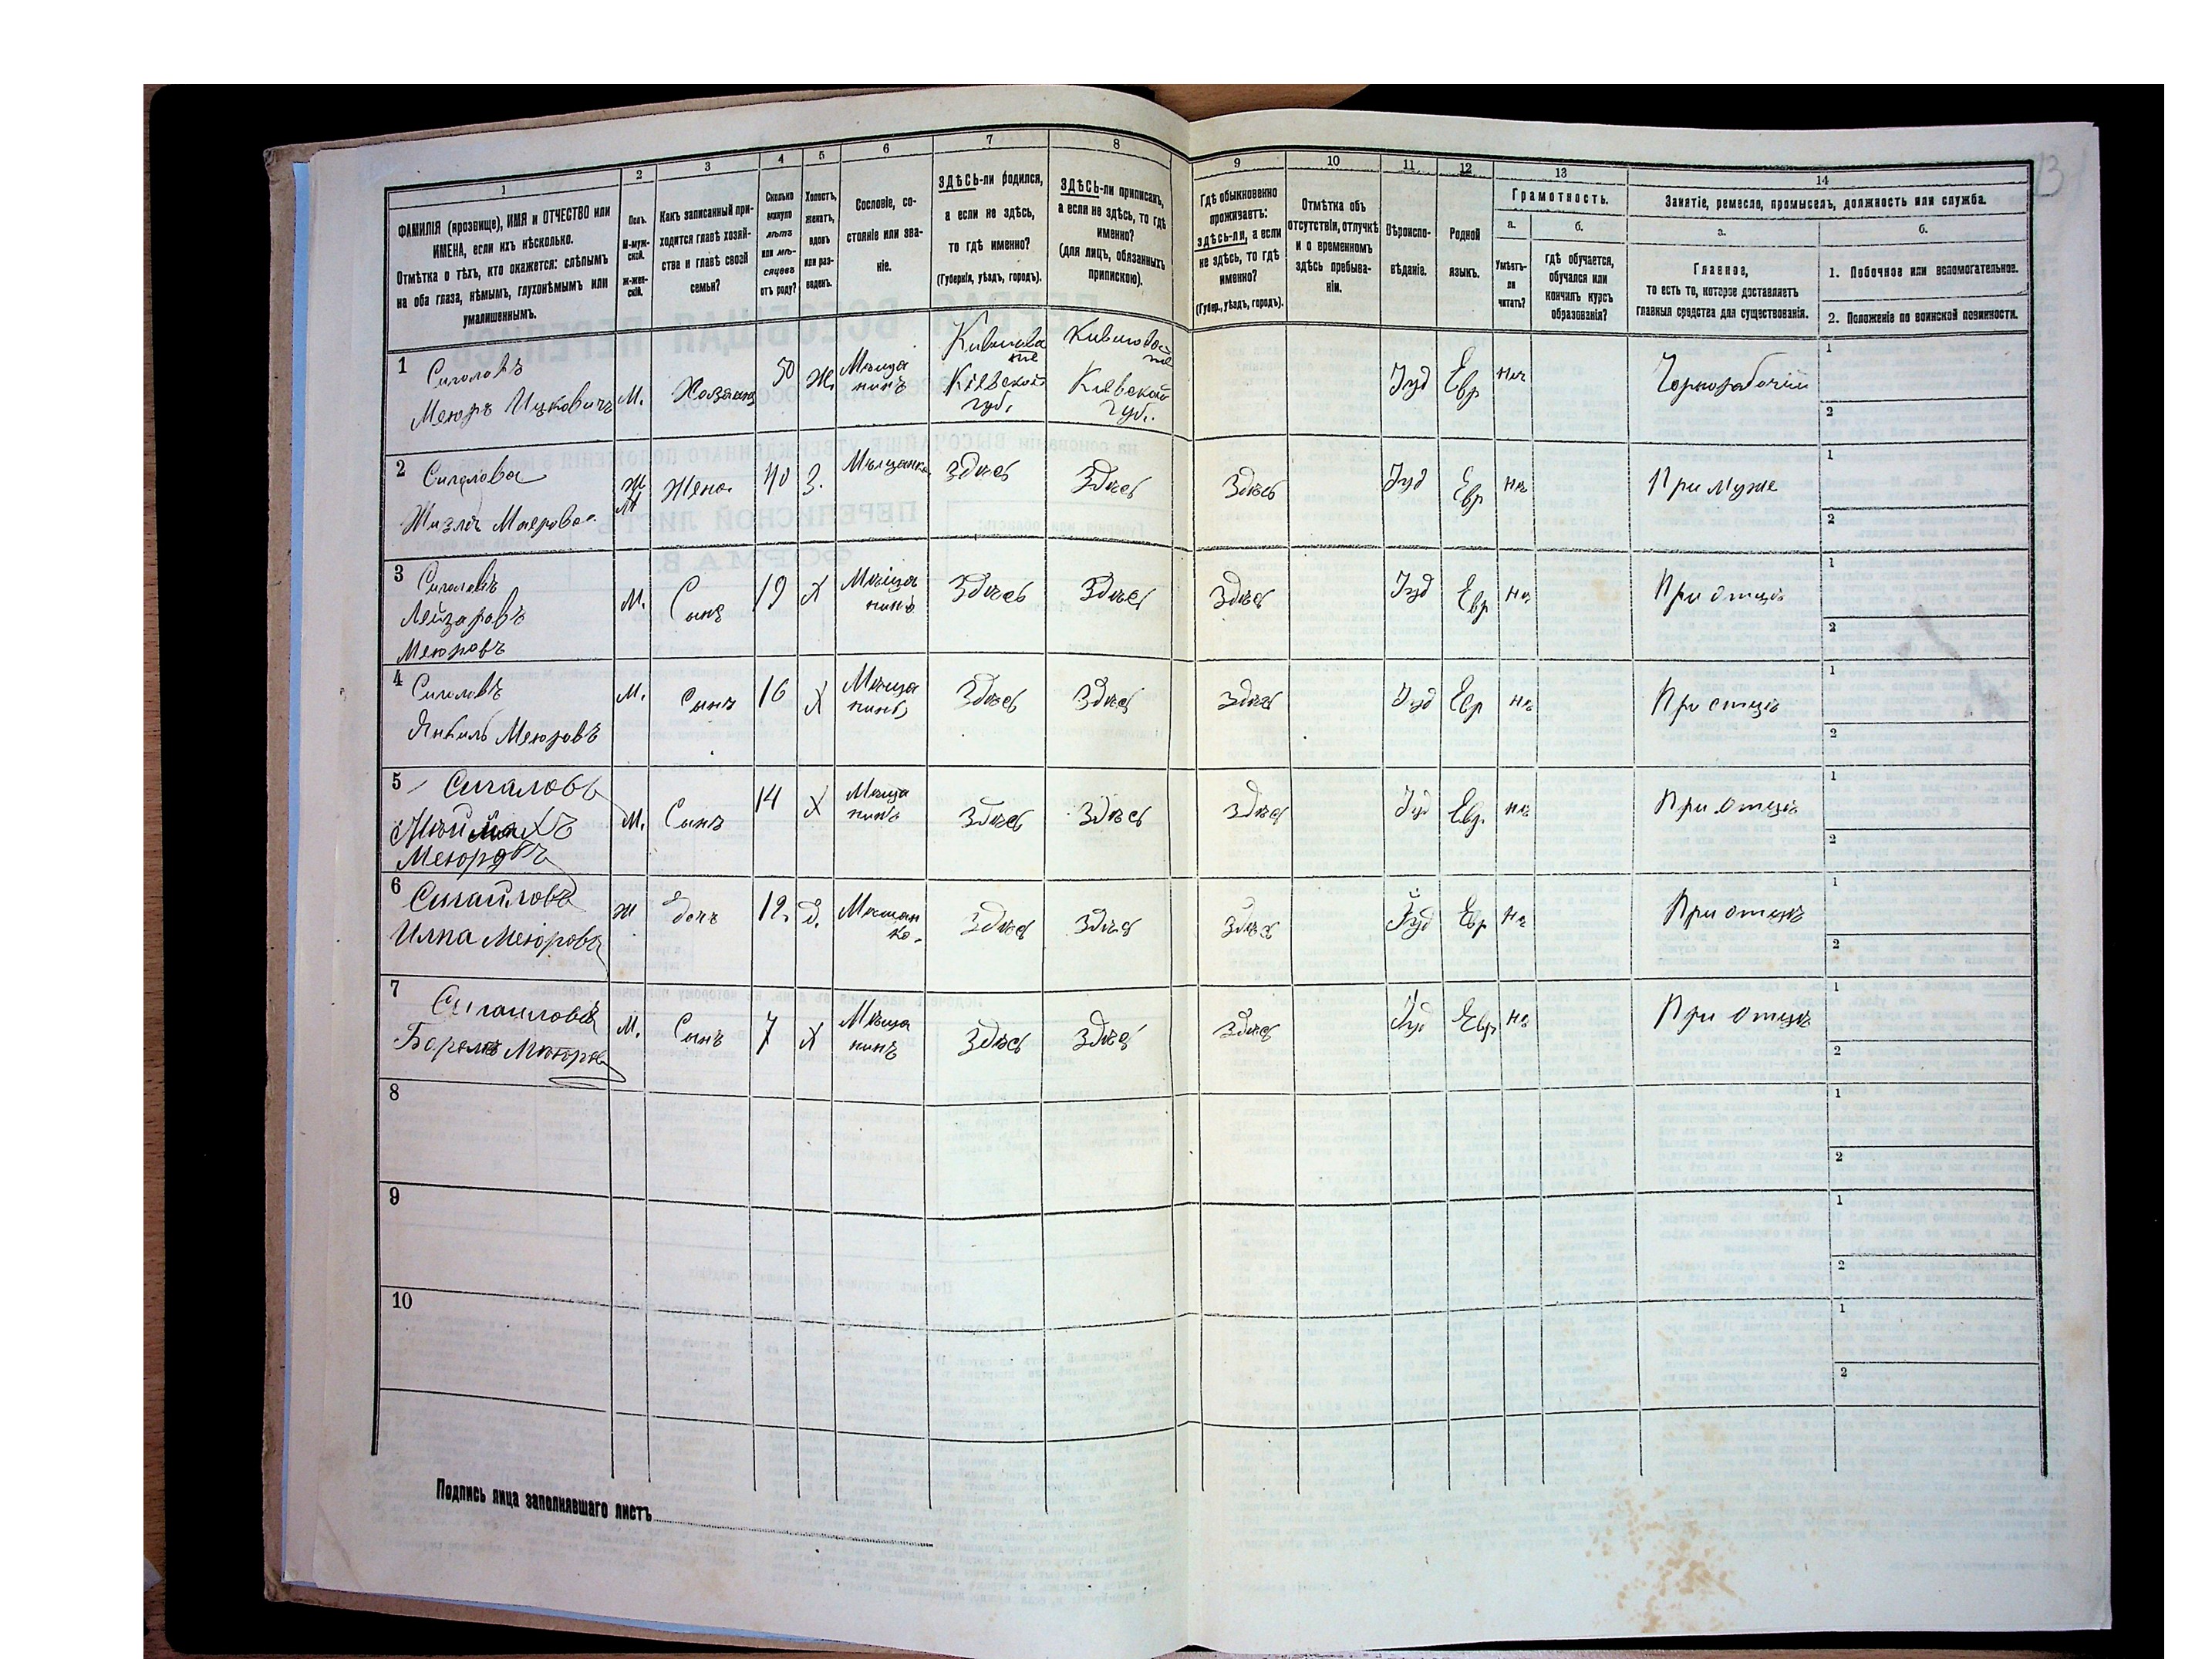 1
2
3
4
5
6
7
8
9
10
11
12
13
14
ФАМИЛІЯ (прозвище), ИМЯ и ОТЧЕСТВО или
ИМЕНА, если ихъ нѣсколько.
Отмѣтка о тѣхъ, кто окажется: слѣпымъ
на оба глаза, нѣмымъ, глухонѣмымъ или
умалишеннымъ.
Полъ.
М-муж-
ской.
Ж-жен-
скій.
Какъ записанный при-
ходится главѣ хозяй-
ства и главѣ своей
семьи?
Сколько
минуло
лѣтъ
или мѣ-
сяцевъ
отъ роду?
Холостъ,
женатъ,
вдовъ
или раз-
веденъ.
Сословіе, со-
стояніе или зва-
ніе.
ЗДѢСЬ-ли родился,
а если не здѣсь,
то гдѣ именно?
(Губернія, уѣздъ, городъ).
ЗДѢСЬ-ли приписанъ,
а если не здѣсь, то гдѣ
именно?
(для лицъ, обязанныхъ
припискою).
Гдѣ обыкновенно
проживаетъ:
здѣсь-ли, а если
не здѣсь, то гдѣ
именно?
(Губер., уѣздъ, городъ).
Отмѣтка объ
отсутствіи, отлучкѣ
и о временномъ
здѣсь пребыва-
ніи.
Вѣроиспо-
вѣданіе.
Родной
языкъ.
Грамотность.
а.
Умѣетъ-
ли
читать?
б.
гдѣ обучается,
обучался или
кончилъ курсъ
образованія?
Занятіе, ремесло, промыселъ, должность или служба.
а.
Главное,
то есть то, которое доставляетъ
главныя средства для существованія.
б.
1. Побочное или вспомогательное.
2. Положеніе по воинской повинности.
13
1
Сигаловъ
Меюръ Ицковичъ
М.
Хозяинъ
50
Ж
Мѣща
нинъ
Кіевской
губ.
Кіевской
губ.
Іуд
Евр
Чернорабочій
1
2
2
Сигалова
Жизля Маерова
Ж
Жена
40
З.
Мѣщанка
Здѣсь
Здѣсь
Здѣсь
Іуд
Евр
не
При муже
1
2
3
Сигаловъ
Лейзаровъ
Меюровъ
М.
Сынъ
19
Х
Мѣща
нинъ
Здѣсь
Здѣсь
Здѣсь
Іуд
Евр
не
При отцѣ
1
2
4
Сигаловъ
Янкель Меюровъ
М.
Сынъ
16
Х
Мѣща
нинъ
Здѣсь
Здѣсь
Здѣсь
Іуд
Евр
не
При отцѣ
1
2
5
Сигаловъ
Меюровъ
М.
Сынъ
14
Х
Мѣща
нинъ
Здѣсь
Здѣсь
Здѣсь
Іуд
Евр.
не
При отцѣ
1
2
6
Сигайлова
Илпа Меюрова
Ж
дочь
12.
д.
Мѣщан
ка.
Здѣсь
Здѣсь
Здѣсь
Іуд
Евр
не
При отцѣ
1
2
7
М.
Сынъ
7
Х
Мѣща
нинъ
Здѣсь
Здѣсь
Здѣсь
Іуд
Евр
не
При отцѣ
1
2
8
1
2
9
1
2
10
1
2
Подпись лица заполнявшаго листъ